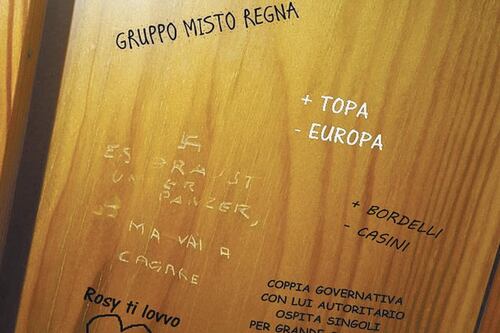 GRUPPO MISTO REGNA
+ TOPA
- EUROPA
ES BRAUST
UNSER
PANZER,
MA VAI A
CAGARE
+ BORDELLI
- CASINI
Rosy ti lovvo
COPPIA GOVERNATIVA
CON LUI AUTORITARIO
OSPITA SINGOLI
PER GRANDE